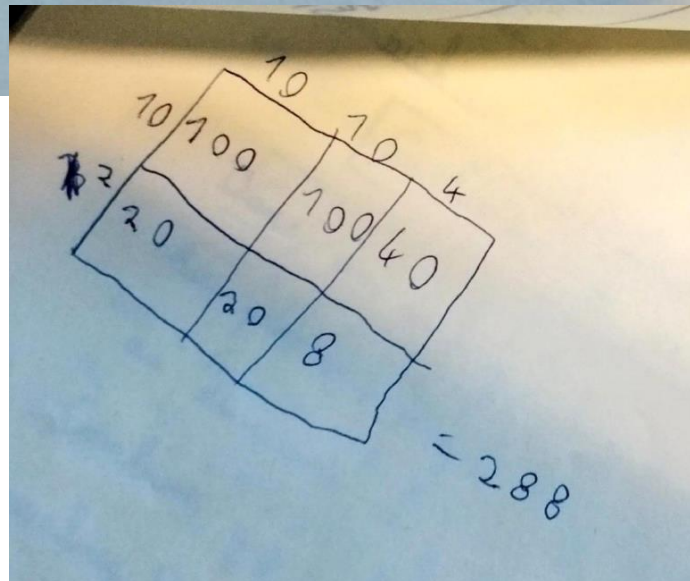 10 10 4
10 100 100 40
2 20 20 8
= 288